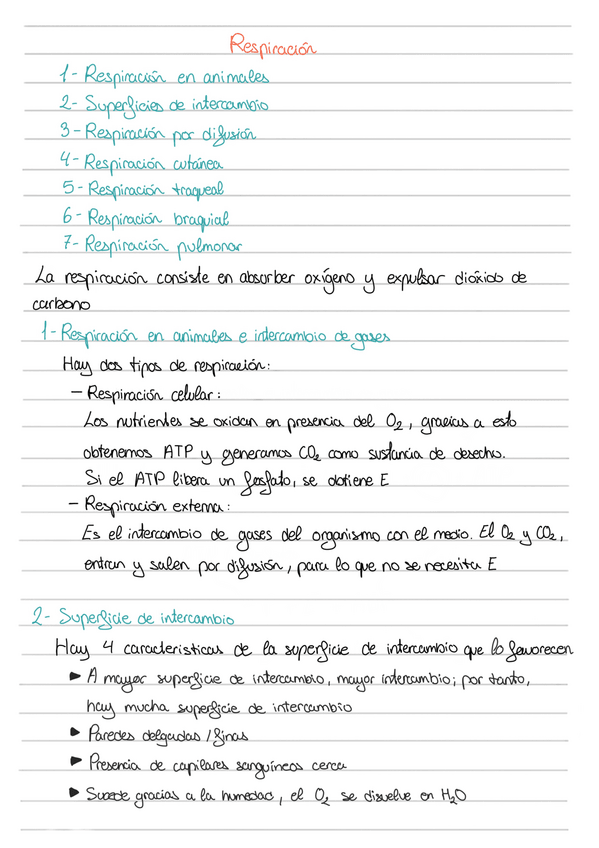 Respiración
1- Respiración en animales
2- Superficies de intercambio
3- Respiración por difusión
4- Respiración cutánea
5- Respiración traqueal
6- Respiración braquial
7- Respiración pulmonar
La respiración consiste en absorber oxígeno y expulsar dióxido de
carbono
1- Respiración en animales e intercambio de gases
Hay dos tipos de respiración:
- Respiración celular:
Los nutrientes se oxidan en presencia del O₂, gracias a esto
obtenemos ATP y generamos CO₂ como sustancia de desecho.
Si el ATP libera un fosfato, se obtiene E
- Respiración externa:
Es el intercambio de gases del organismo con el medio. El O₂ y CO₂,
entran y salen por difusión, para lo que no se necesita E
2- Superficie de intercambio
Hay 4 características de la superficie de intercambio que lo favorecen
▶ A mayor superficie de intercambio, mayor intercambio; por tanto,
hay mucha superficie de intercambio
▶ Paredes delgadas / finas
▶ Presencia de capilares sanguíneos cerca
▶ Sucede gracias a la humedad, el O₂ se disuelve en H₂O